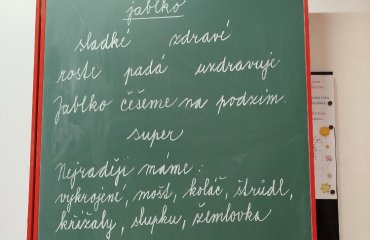 jablko
sladké zdravé
roste padá uzdravuje
Jablko češeme na podzim.
super
Nejraději máme:
vykrojené, mošt, koláč, štrúdl,
křížaly, slupku, žemlovka